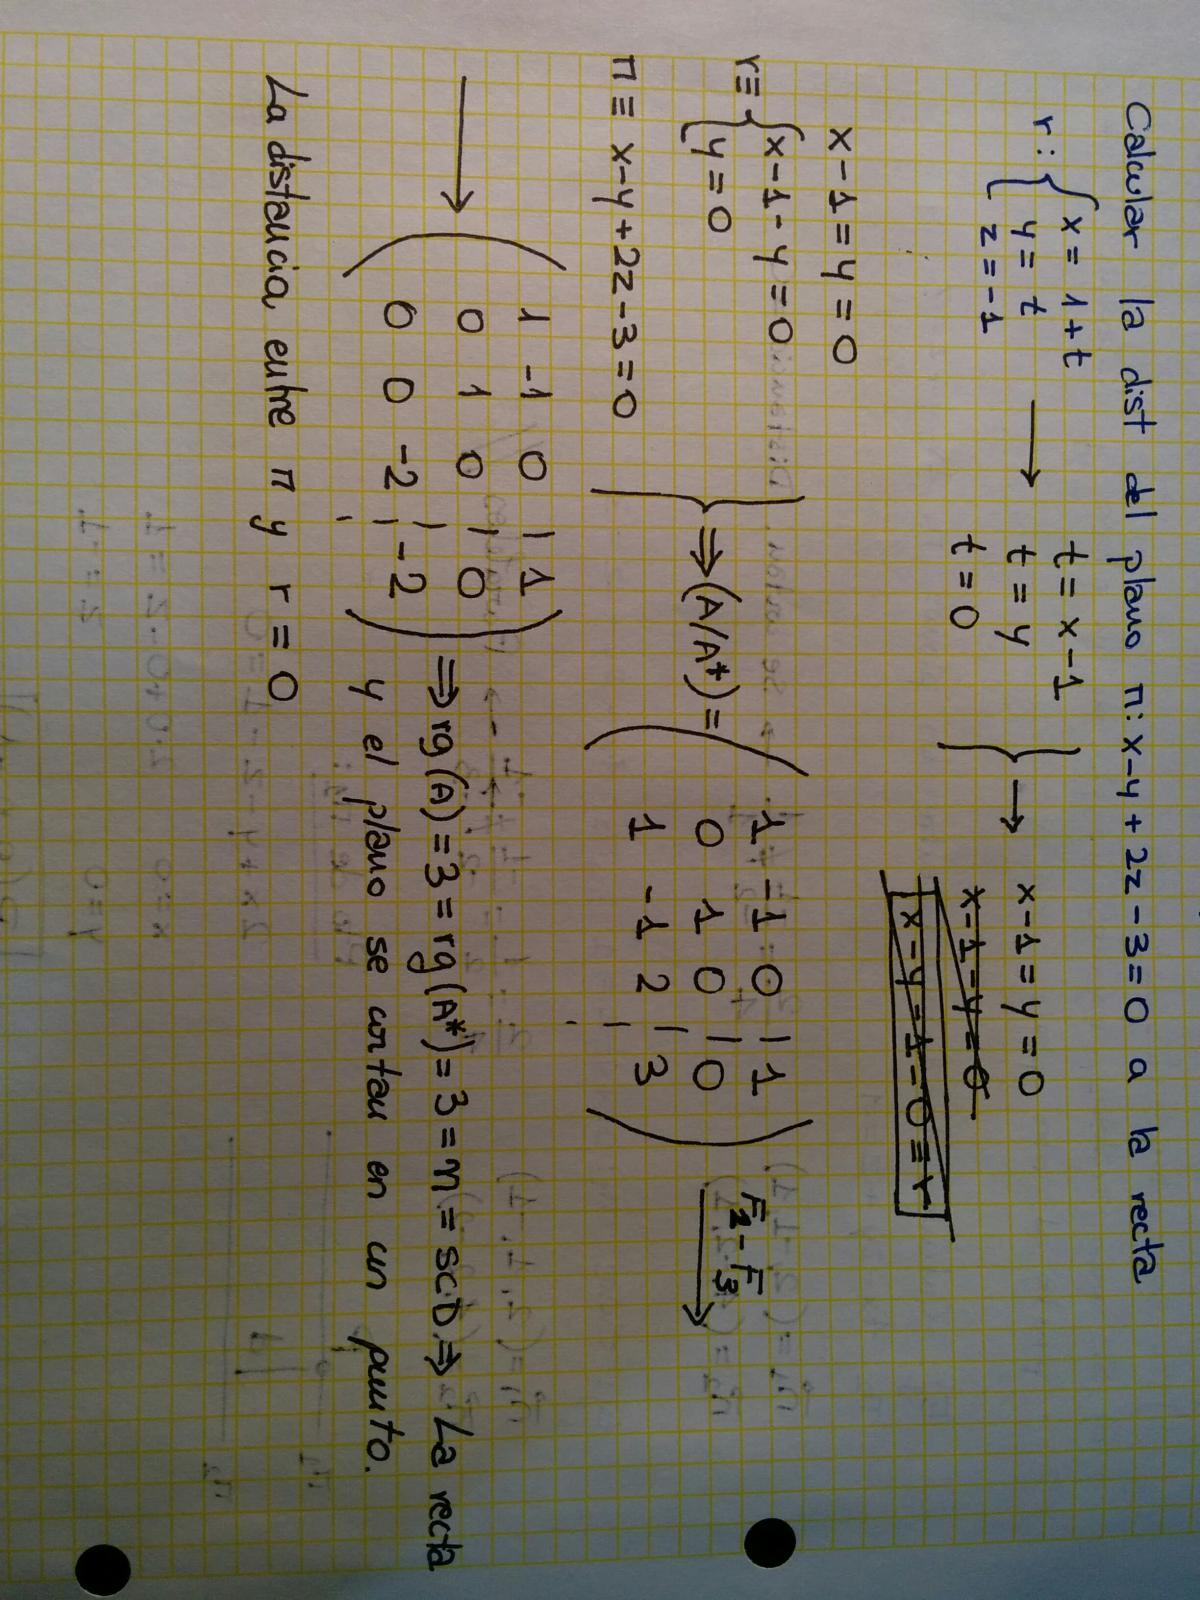 Calcular la dist del plano π: x-y+2z-3=0 a la recta
r: { x=1+t → t=x-1 } → x-1=y=0
y=t t=y x-1-y=0
z=-1 t=0 x-y=1=0≡r
x-1=y=0
r≡ { x-1-y=0
y=0
π≡ x-y+2z-3=0 } ⇒ (A/A*)= ( 1 -1 0 | 1
0 1 0 | 0
1 -1 2 | 3 ) F1-F3 →
→ ( 1 -1 0 | 1
0 1 0 | 0
0 0 -2 | -2 ) ⇒ rg(A)=3=rg(A*)=3=n=SCD ⇒ La recta
y el plano se cortan en un punto.
La distancia entre π y r = 0